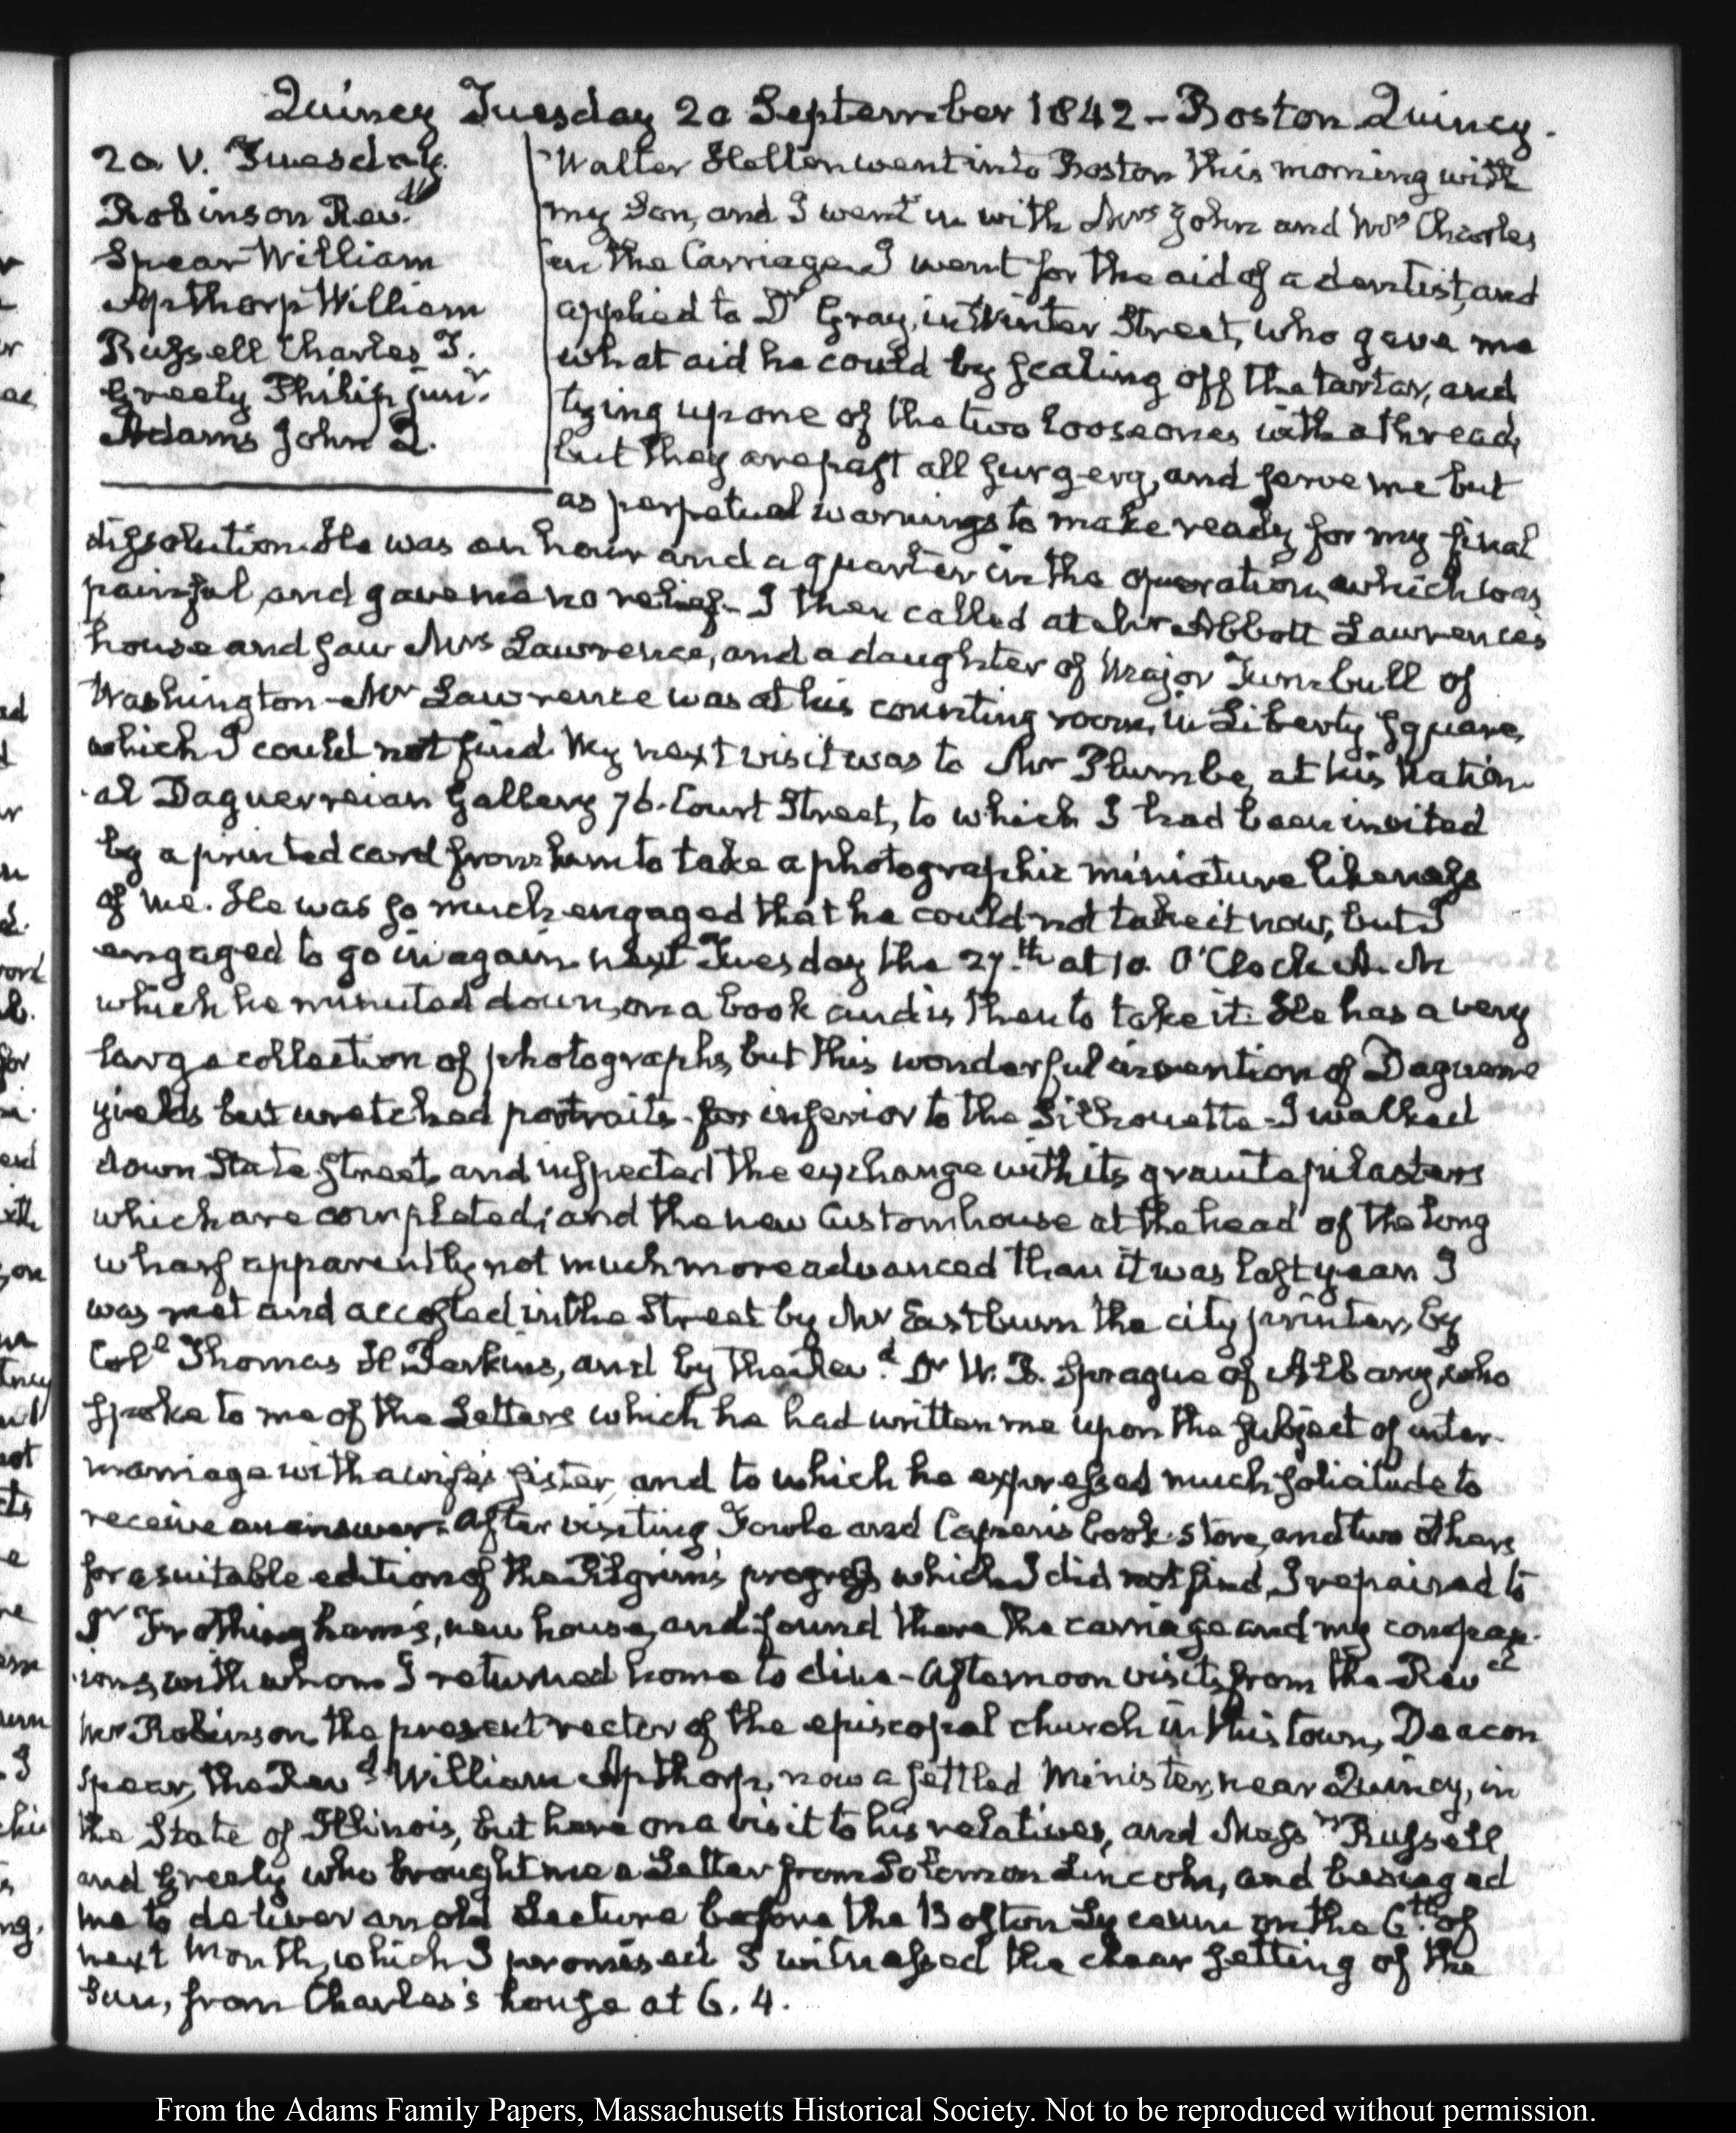 Quincy Tuesday 20 September 1842 - Boston Quincy.
20. V. Tuesday.
Robinson Revd.
Spear William
Apthorp William
Russell Charles T.
Greely Philip junr.
Adams John Q.
Walter Hellen went into Boston this morning with
my Son, and I went in with Mrs John and Mrs Charles
in the Carriage. I went for the aid of a dentist, and
applied to Dr Gray, in Winter Street, who gave me
what aid he could by scaling off the tartar, and
tying up one of the two loose ones with a thread,
but they are past all surgery, and serve me but
as perpetual warnings to make ready for my final
dissolution. He was an hour and a quarter in the operation, which was
painful, and gave me no relief - I then called at Mr Abbott Lawrence's
house and saw Mrs Lawrence, and a daughter of Major Turnbull of
Washington - Mr Lawrence was at his counting room, in Liberty Square,
which I could not find. My next visit was to Mr Plumbe, at his Nation-
al Daguerreian Gallery 76. Court Street, to which I had been invited
by a printed card from him to take a photographic miniature likeness
of me. He was so much engaged that he could not take it now, but I
engaged to go in again next Tuesday the 27.th at 10. O'Clock A.M
which he minuted down, on a book and is then to take it. He has a very
large collection of photographs, but this wonderful invention of Daguerre
yields but wretched portraits - far inferior to the Silhouette - I walked
down State Street, and inspected the exchange with its granite pilasters
which are completed; and the new Customhouse at the head of the long
wharf apparently not much more advanced than it was last year. I
was met and accosted in the Street by Mr Eastburn the city printer, by
Coll Thomas H. Perkins, and by the Revd. Dr W. B. Sprague of Albany, who
spoke to me of the Letters which he had written me upon the subject of inter-
marriage with a wife's sister, and to which he expressed much solicitude to
receive an answer. After visiting Fowle and Capen's book-store, and two others
for a suitable edition of the Pilgrim's progress which I did not find, I repaired to
Dr Frothingham's, new house, and found there the carriage and my compan-
ions, with whom I returned home to dine - Afternoon visits from the Revd
Mr Robinson the present rector of the episcopal church in this town, Deacon
Spear, the Revd William Apthorp, now a settled Minister, near Quincy, in
the State of Illinois, but here on a visit to his relatives, and Messrs Russell
and Greely who brought me a Letter from Solomon Lincoln, and besieged
me to deliver an old Lecture before the Boston Lyceum on the 6.th of
next Month, which I promised I witnessed the clear setting of the
Sun, from Charles's house at 6. 4.
From the Adams Family Papers, Massachusetts Historical Society. Not to be reproduced without permission.